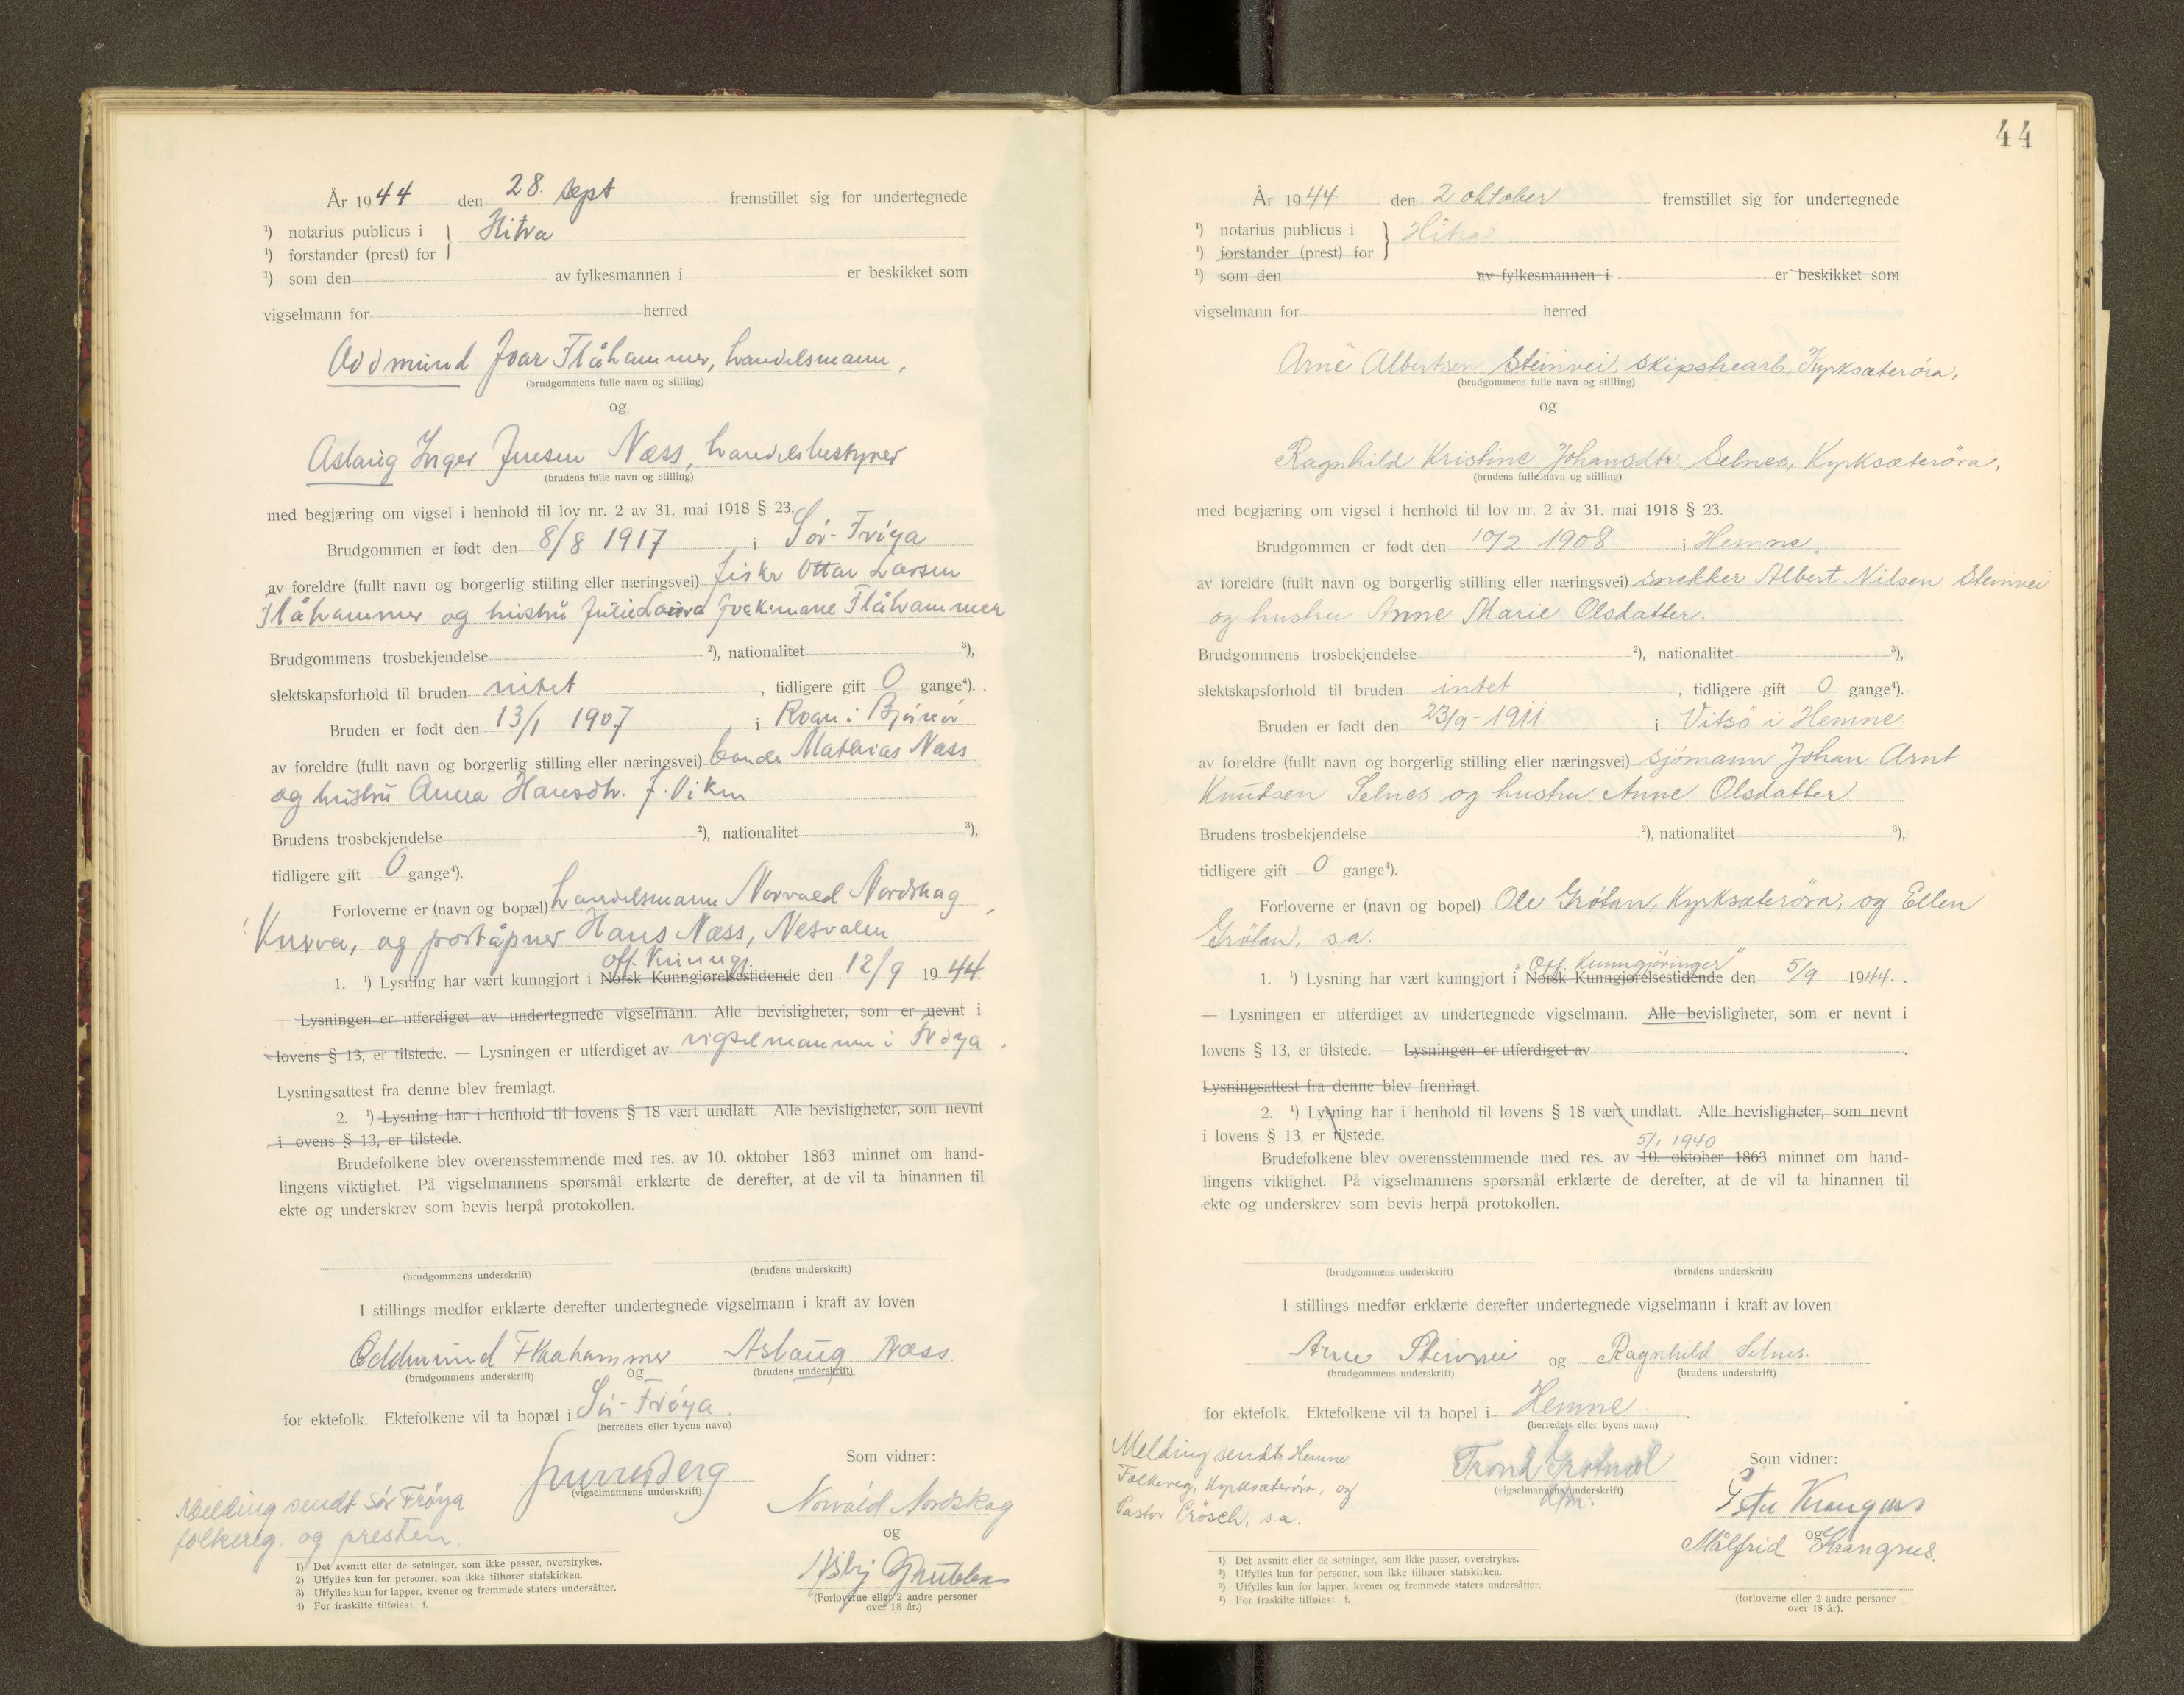 År 1944 den 28. sept fremstillet sig for undertegnede
¹) notarius publicus i } Hitra
¹) forstander (prest) for
¹) som den av fylkesmannen i er beskikket som
vigselmann for herred
Oddmund Ivar Flåhammer, handelsmann,
(brudgommens fulle navn og stilling)
og
Aslaug Inger Jensen Næss, handelsbestyrer
(brudens fulle navn og stilling)
med begjæring om vigsel i henhold til lov nr. 2 av 31. mai 1918 § 23.
Brudgommen er født den 8/8 1917 i Sør-Frøya
av foreldre (fullt navn og borgerlig stilling eller næringsvei) fisker Ottar Larsen
Flåhammer og hustru Julie Flåhammer
Brudgommens trosbekjendelse ²), nationalitet ³),
slektskapsforhold til bruden intet, tidligere gift 0 gange⁴).
Bruden er født den 13/1 1907 i Roan i Bjørnør
av foreldre (fullt navn og borgerlig stilling eller næringsvei) bonde Mathias Næss
og hustru Anna Hansdtr. f. Viken
Brudens trosbekjendelse ²), nationalitet ³),
tidligere gift 0 gange⁴).
Forloverne er (navn og bopæl) handelsmann Norvald Nordskag,
Kverva, og poståpner Hans Næss, Nesvalen
off. Kunngj.
1. ¹) Lysning har vært kunngjort i Norsk Kunngjørelsestidende den 12/9 1944.
— Lysningen er utferdiget av undertegnede vigselmann. Alle bevisligheter, som er nevnt i
lovens § 13, er tilstede. — Lysningen er utferdiget av vigselmannen i Frøya.
Lysningsattest fra denne blev fremlagt.
2. ¹) Lysning har i henhold til lovens § 18 vært undlatt. Alle bevisligheter, som nevnt
i ovens § 13, er tilstede.
Brudefolkene blev overensstemmende med res. av 10. oktober 1863 minnet om hand-
lingens viktighet. På vigselmannens spørsmål erklærte de derefter, at de vil ta hinannen til
ekte og underskrev som bevis herpå protokollen.
(brudgommens underskrift) (brudens underskrift)
I stillings medfør erklærte derefter undertegnede vigselmann i kraft av loven
Oddmund Flaahammer Aslaug Næss.
(brudgommens underskrift) og (brudens underskrift)
for ektefolk. Ektefolkene vil ta bopæl i Sør-Frøya.
(herredets eller byens navn)
Som vidner:
(vigselmannens underskrift).
Melding sendt Sør Frøya
folkereg. og presten.
Norvald Nordskag
og
Grubba
(Forloverne eller 2 andre personer
over 18 år.)
1) Det avsnitt eller de setninger, som ikke passer, overstrykes.
2) Utfylles kun for personer, som ikke tilhører statskirken.
3) Utfylles kun for lapper, kvener og fremmede staters undersåtter.
4) For fraskilte tilføies: f.
44
År 1944 den 2. oktober fremstillet sig for undertegnede
¹) notarius publicus i } Hitra
¹) forstander (prest) for
¹) som den av fylkesmannen i er beskikket som
vigselmann for herred
Arne Albertsen Steinvei, skipstrearb., Kyrksæterøra,
(brudgommens fulle navn og stilling)
og
Ragnhild Kristine Johansdtr. Selnes, Kyrksæterøra,
(brudens fulle navn og stilling)
med begjæring om vigsel i henhold til lov nr. 2 av 31. mai 1918 § 23.
Brudgommen er født den 10/2 1908 i Hemne.
av foreldre (fullt navn og borgerlig stilling eller næringsvei) snekker Albert Nilsen Steinvei
og hustru Anne Marie Olsdatter.
Brudgommens trosbekjendelse ²), nationalitet ³),
slektskapsforhold til bruden intet, tidligere gift 0 gange⁴).
Bruden er født den 23/9-1911 i Vitsø i Hemne.
av foreldre (fullt navn og borgerlig stilling eller næringsvei) sjømann Johan Arnt
Knutsen Selnes og hustru Anne Olsdatter.
Brudens trosbekjendelse ²), nationalitet ³),
tidligere gift 0 gange⁴).
Forloverne er (navn og bopel) Ole Grøtan, Kyrksæterøra, og Ellen
Grøtan, s.a.
"Off. Kunngjøringer"
1. ¹) Lysning har vært kunngjort i Norsk Kunngjørelsestidende den 5/9 1944.
— Lysningen er utferdiget av undertegnede vigselmann. Alle bevisligheter, som er nevnt i
lovens § 13, er tilstede. — Lysningen er utferdiget av
Lysningsattest fra denne blev fremlagt.
2. ¹) Lysning har i henhold til lovens § 18 vært undlatt. Alle bevisligheter, som nevnt
i lovens § 13, er tilstede.
5/1 1940
Brudefolkene blev overensstemmende med res. av 10. oktober 1863 minnet om hand-
lingens viktighet. På vigselmannens spørsmål erklærte de derefter, at de vil ta hinannen til
ekte og underskrev som bevis herpå protokollen.
(brudgommens underskrift) (brudens underskrift)
I stillings medfør erklærte derefter undertegnede vigselmann i kraft av loven
Arne Steinvei og Ragnhild Selnes.
(brudgommens underskrift) (brudens underskrift)
for ektefolk. Ektefolkene vil ta bopel i Hemne.
(herredets eller byens navn)
Melding sendt Hemne
Folkereg, Kyrksæterøra, og
Pastor Prøsch, s.a.
Trond
(vigselmannens underskrift)
dfm.
Som vidner:
Krangnes
og
Målfrid Krangnes.
(forloverne eller 2 andre personer
over 18 år).
¹) Det avsnitt eller de setninger, som ikke passer, overstrykes.
²) Utfylles kun for personer, som ikke tilhører statskirken.
³) Utfylles kun for lapper, kvener og fremmede staters undersåtter.
⁴) For fraskilte tilføies: f.